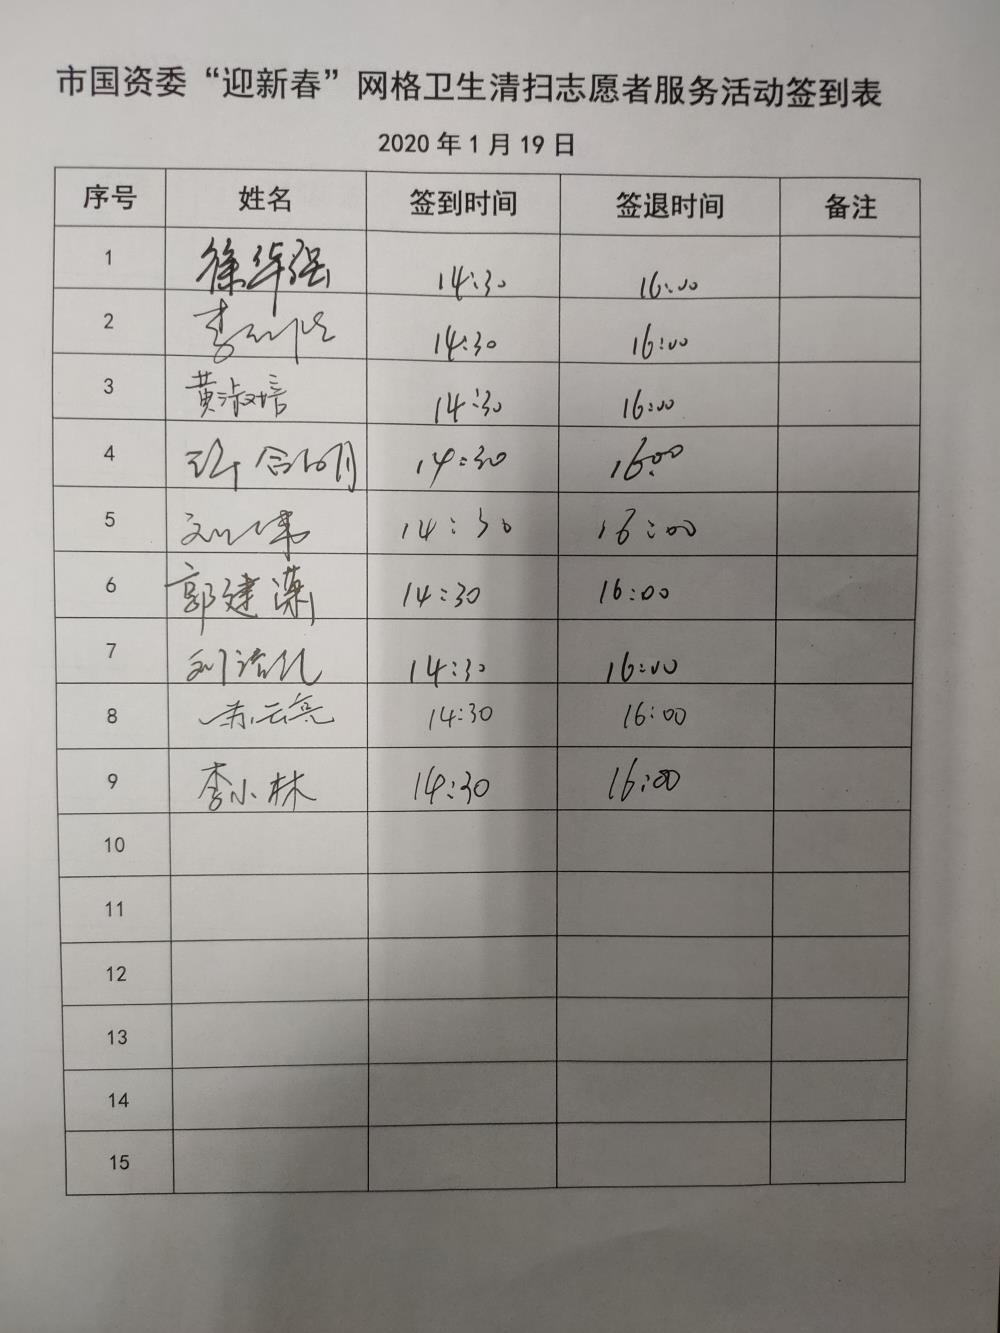 市国资委“迎新春”网格卫生清扫志愿者服务活动签到表
2020年1月19日
序号 姓名 签到时间 签退时间 备注
1 徐华强 14:30 16:00
2 李 14:30 16:00
3 黄淑培 14:30 16:00
4 14:30 16:00
5 刘伟 14:30 16:00
6 郭建 14:30 16:00
7 刘 14:30 16:00
8 云亮 14:30 16:00
9 李小林 14:30 16:00
10
11
12
13
14
15